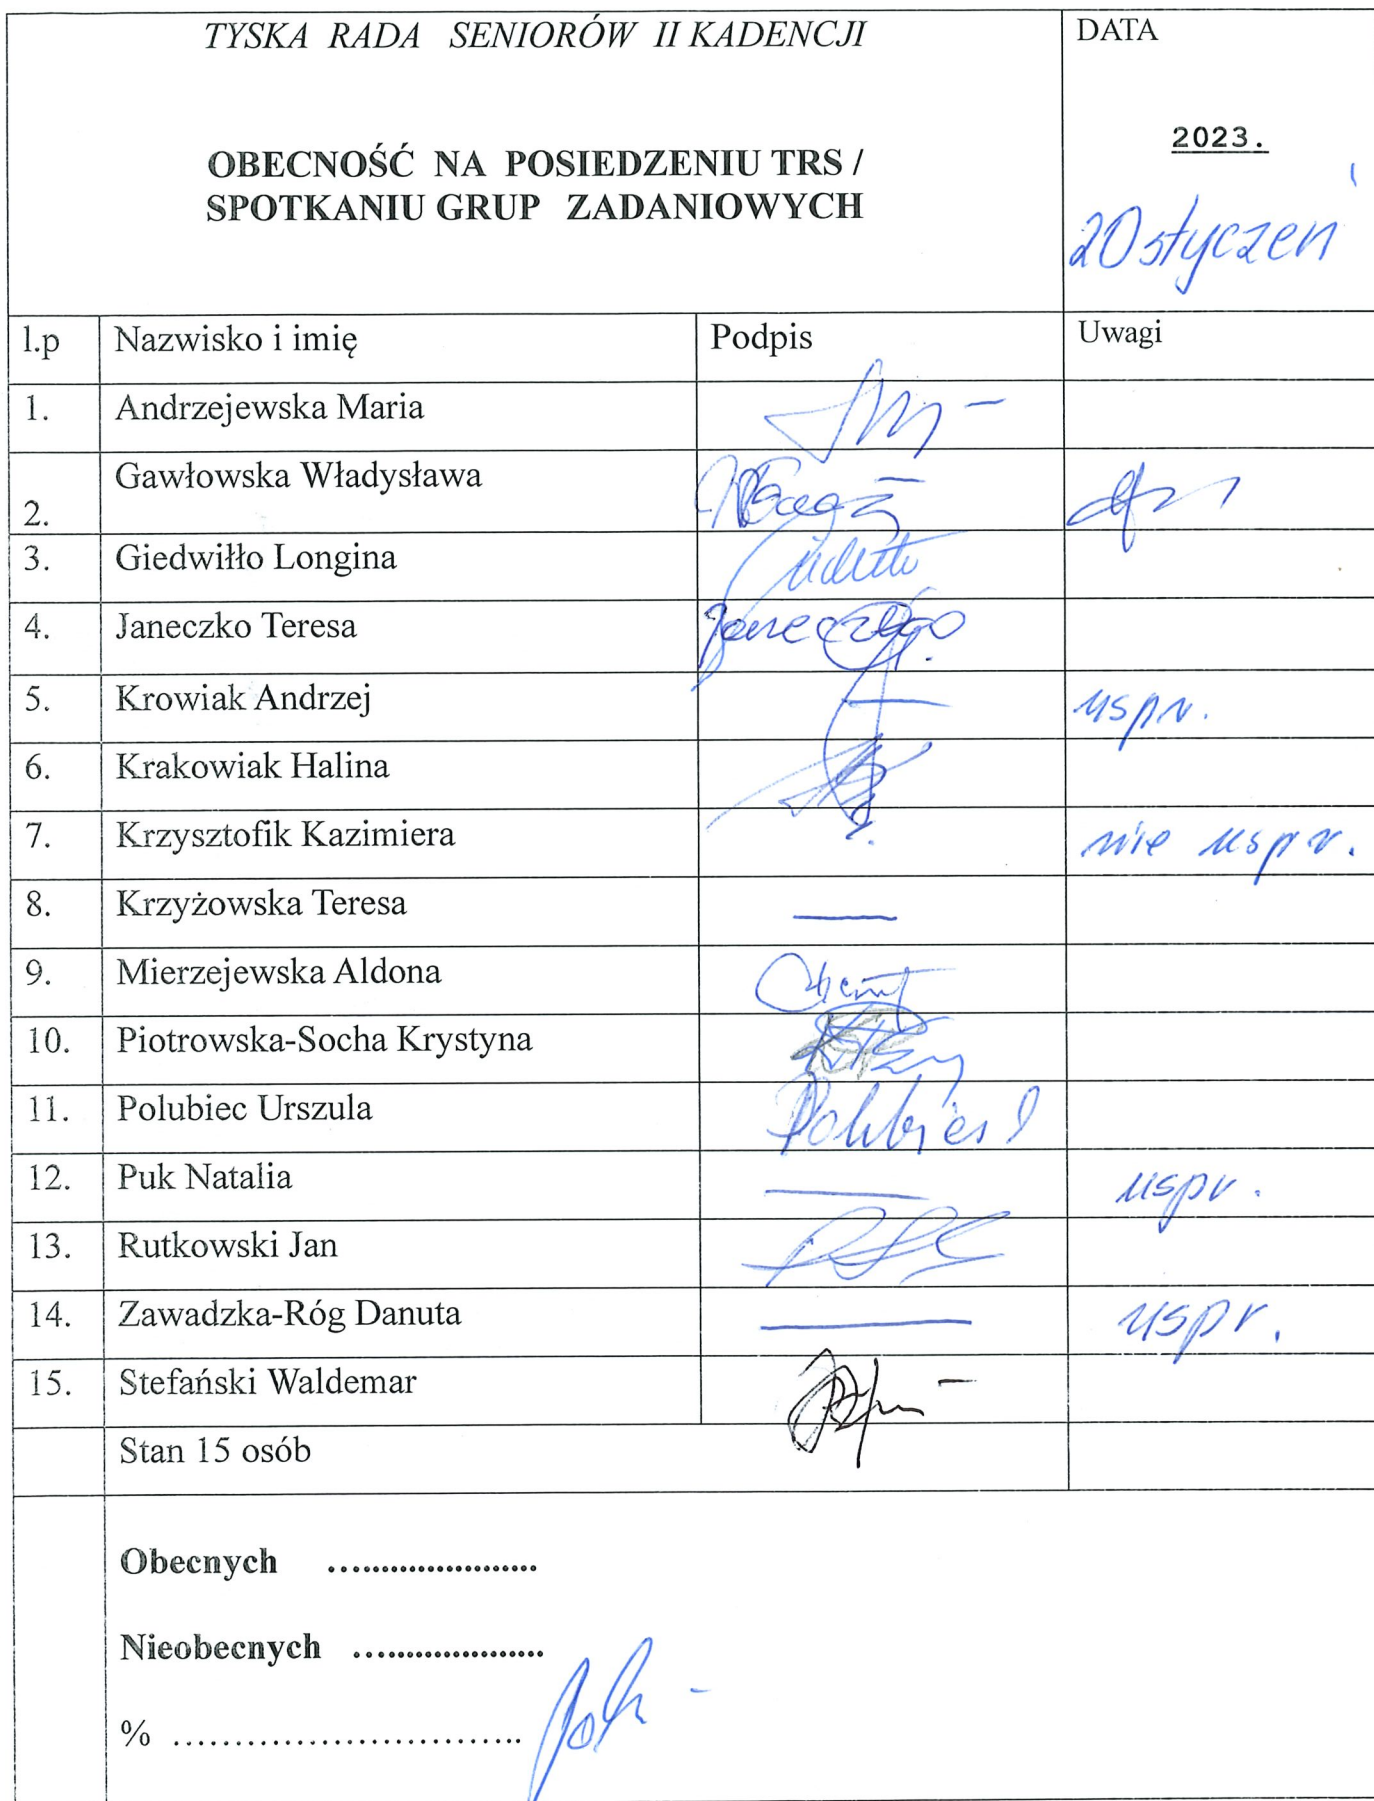 TYSKA RADA SENIORÓW II KADENCJI
DATA
2023.
OBECNOŚĆ NA POSIEDZENIU TRS /
SPOTKANIU GRUP ZADANIOWYCH
20 styczeń
l.p Nazwisko i imię Podpis Uwagi
1. Andrzejewska Maria
2. Gawłowska Władysława
3. Giedwiłło Longina
4. Janeczko Teresa Janeczko
5. Krowiak Andrzej — uspr.
6. Krakowiak Halina
7. Krzysztofik Kazimiera nie uspr.
8. Krzyżowska Teresa —
9. Mierzejewska Aldona
10. Piotrowska-Socha Krystyna
11. Polubiec Urszula
12. Puk Natalia — uspr.
13. Rutkowski Jan
14. Zawadzka-Róg Danuta — uspr.
15. Stefański Waldemar
Stan 15 osób
Obecnych .....................
Nieobecnych ...................
% ............................